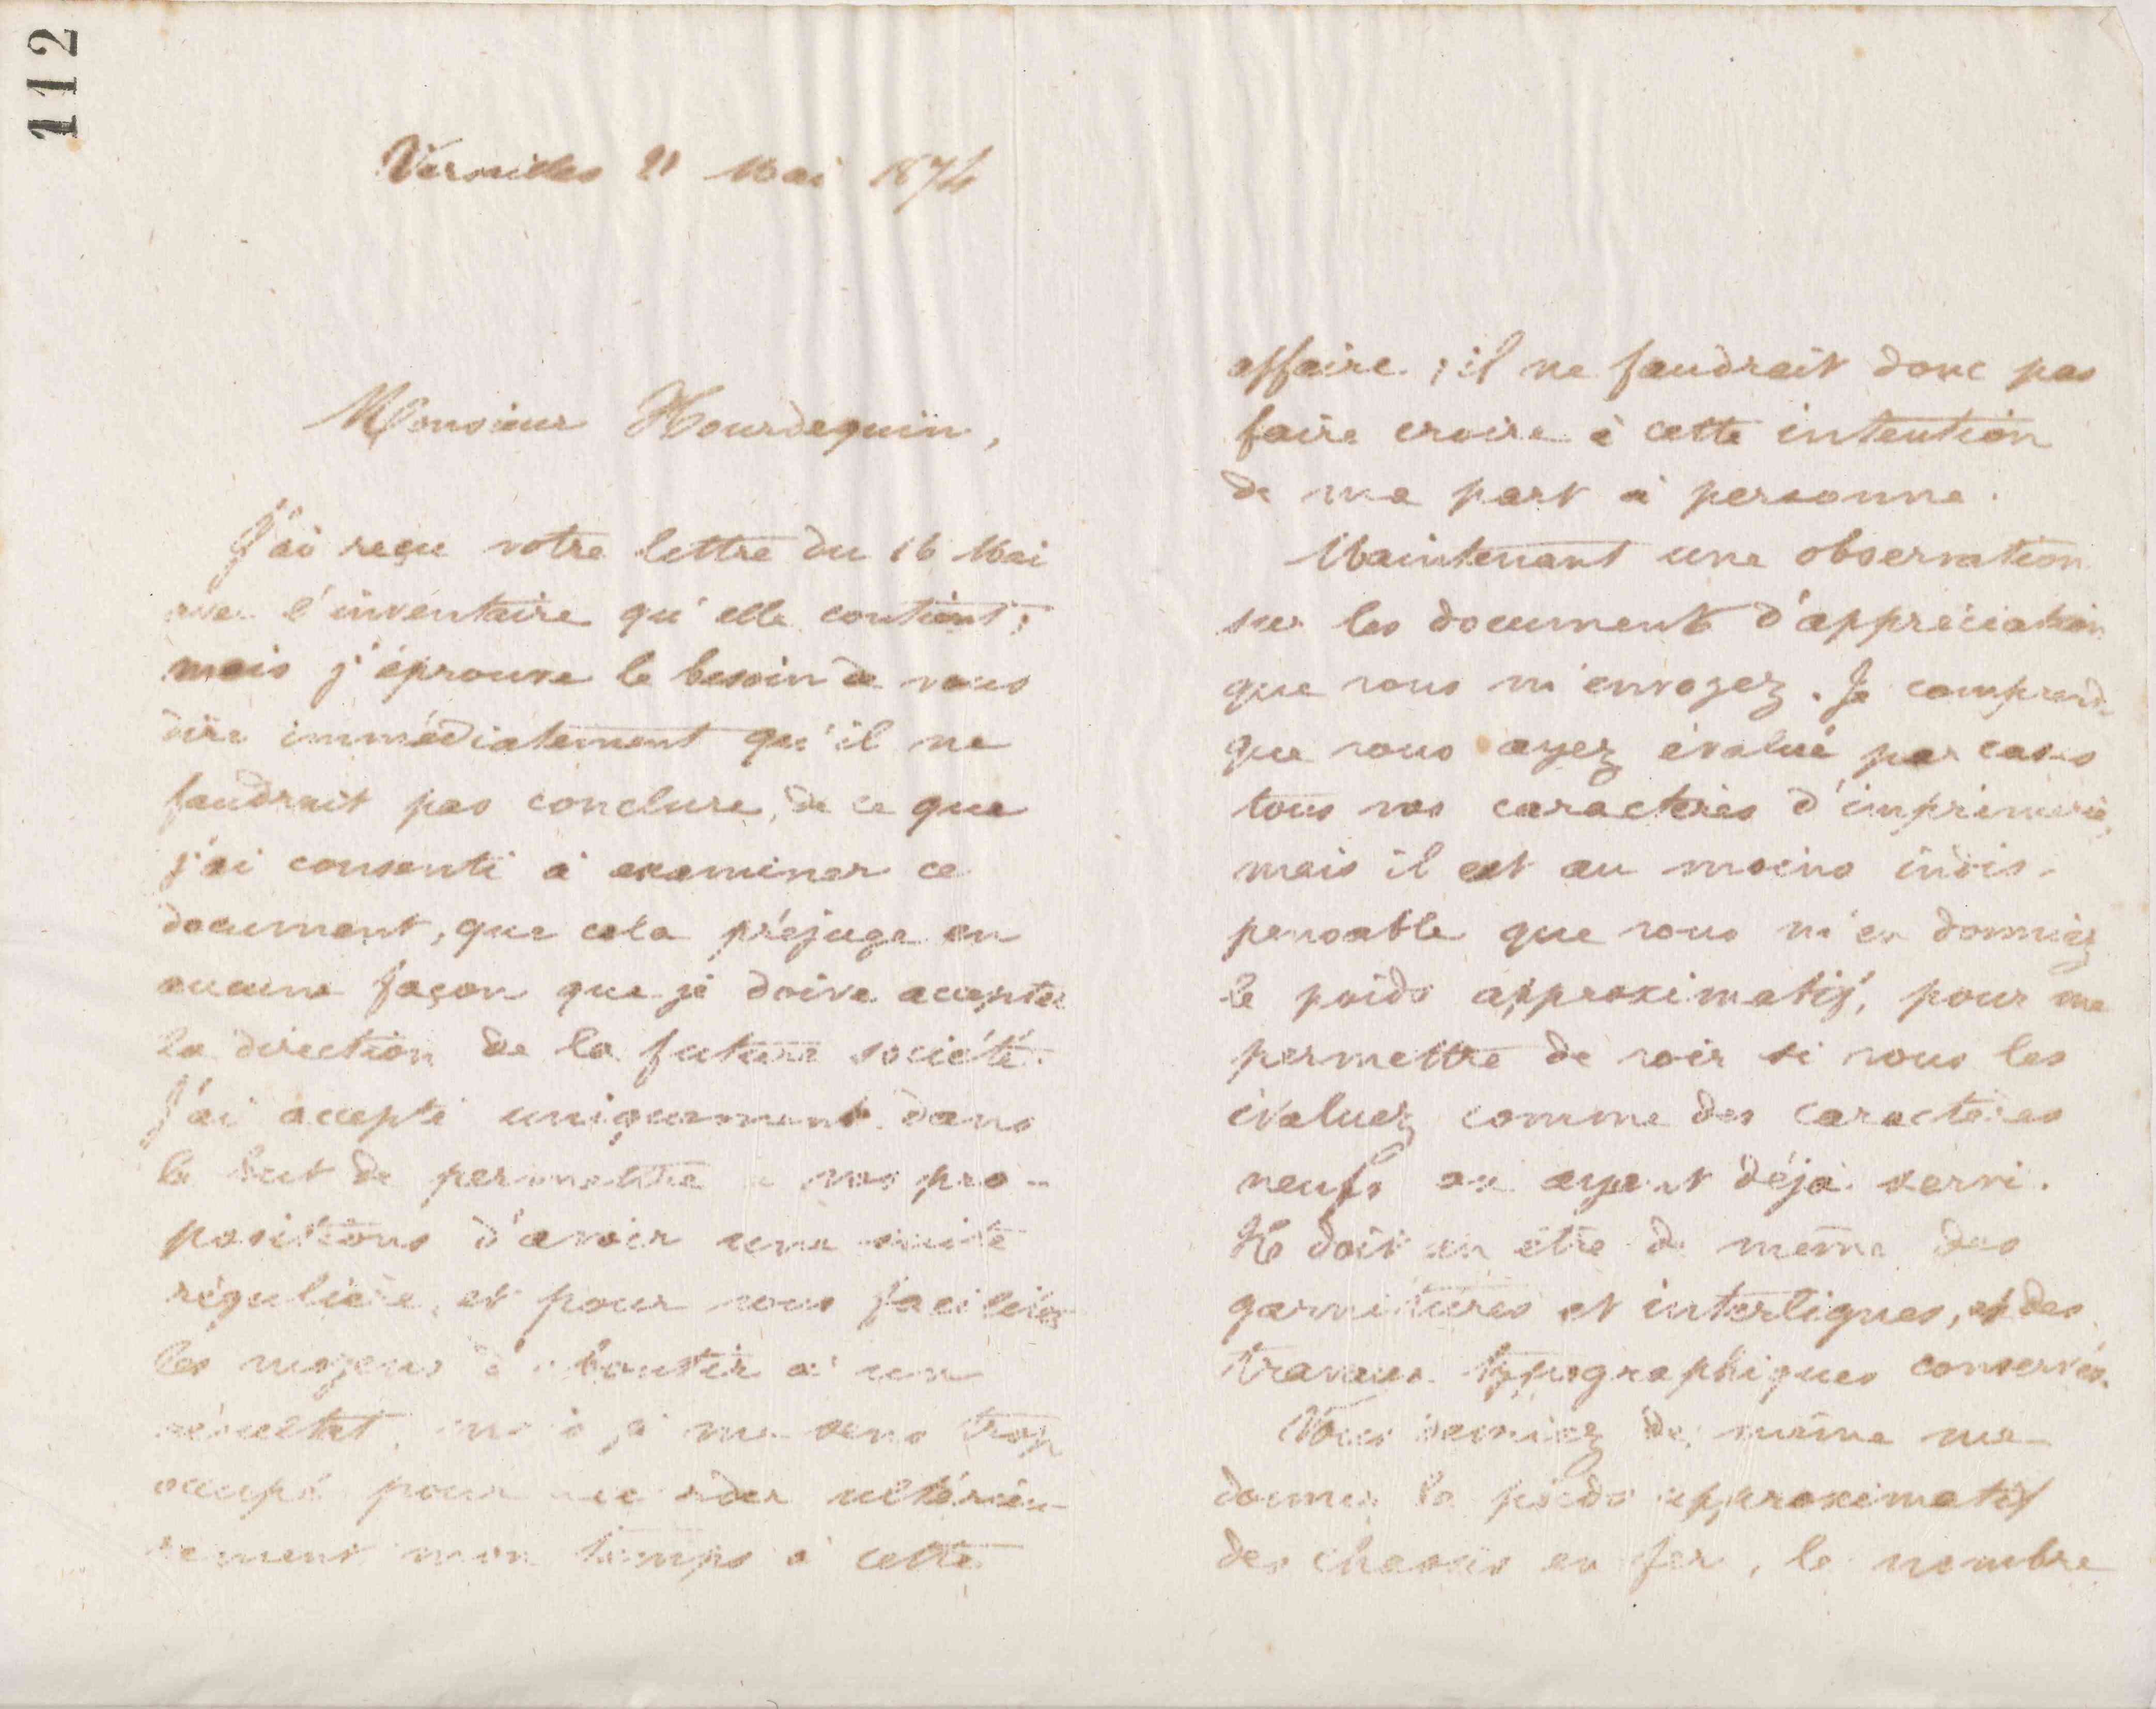 112
Versailles 21 Mai 1874
Monsieur Hourdequin,
J'ai reçu votre lettre du 16 Mai
avec l'inventaire qu'elle contient ;
mais j'éprouve le besoin de vous
dire immédiatement qu'il ne
faudrait pas conclure, de ce que
j'ai consenti à examiner ce
document, que cela préjuge en
aucune façon que je doive accepter
la direction de la future société.
J'ai accepté uniquement dans
le but de permettre à vos pro-
positions d'avoir une suite
régulière, et pour vous faciliter
les moyens d'aboutir à un
résultat, mais je me sens trop
occupé pour ultérieu-
rement mon temps à cette
affaire ; il ne faudrait donc pas
faire croire à cette intention
de ma part à personne.
Maintenant une observation
sur les documents d'appréciation
que vous m'envoyez. Je comprends
que vous ayez évalué par casses
tous vos caractères d'imprimerie,
mais il est au moins indis-
pensable que vous m'en donniez
le poids approximatif, pour me
permettre de voir si vous les
évaluez comme des caractères
neufs ou ayant déjà servi.
Il doit en être de même des
garnitures et interlignes, et des
travaux typographiques conservés.
Vous devriez de même me
donner le poids approximatif
des chassis en fer, le nombre